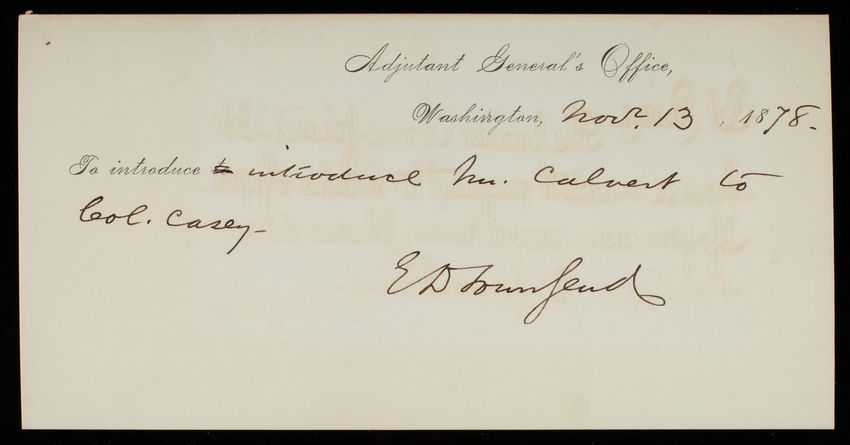 Adjutant General's Office,
Washington, Novr. 13, 1878.
To introduce to introduce Mr. Calvert to
Col. Casey-
E D Townsend